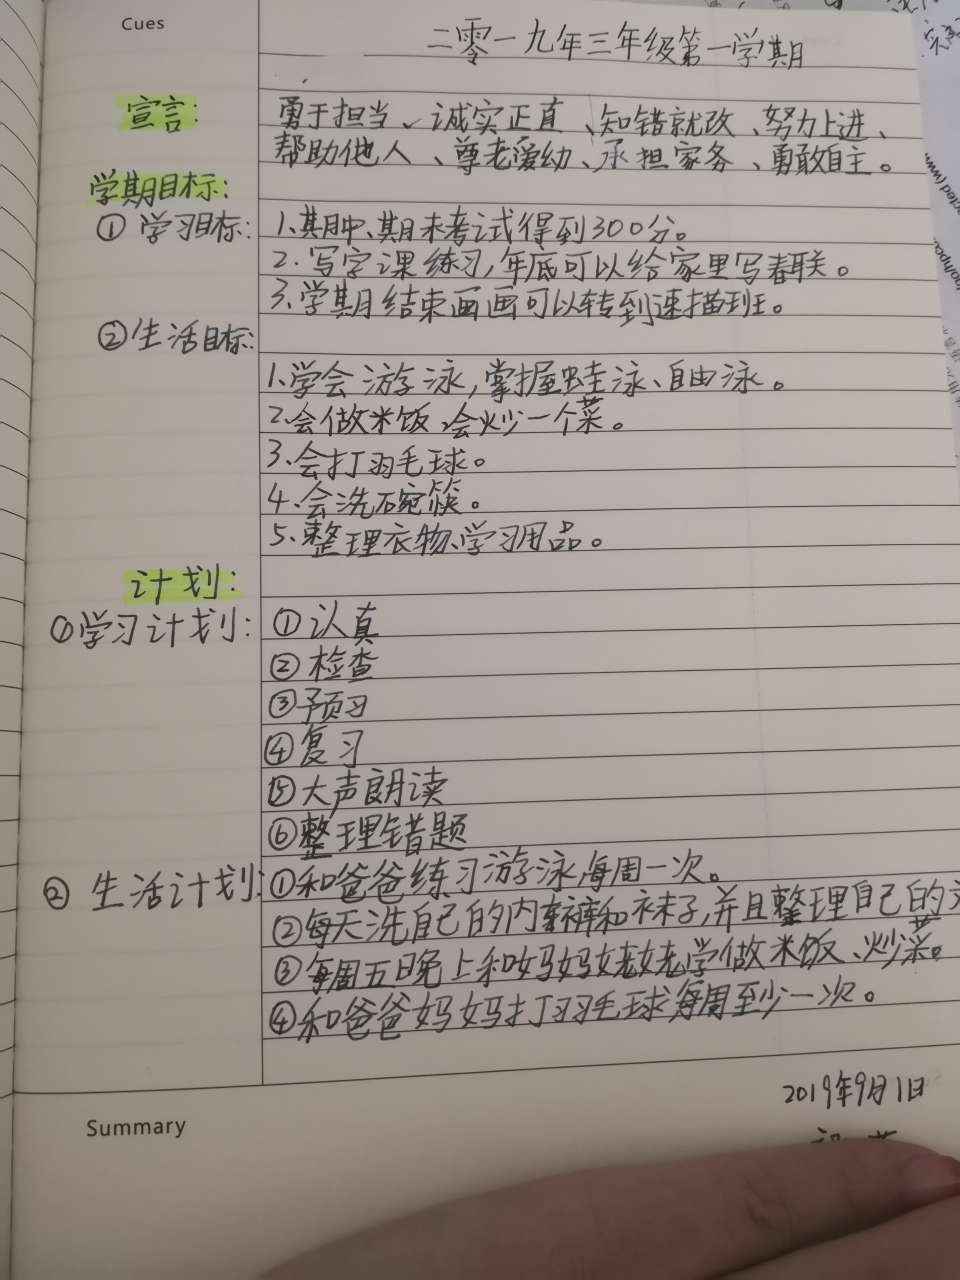 Cues
二零一九年三年级第一学期
宣言: 勇于担当、诚实正直、知错就改、努力上进、
帮助他人、尊老爱幼、承担家务、勇敢自主。
学期目标:
① 学习目标: 1.期中、期末考试得到300分。
2.写字课练习,年底可以给家里写春联。
3.学期结束画画可以转到速描班。
② 生活目标:
1.学会游泳,掌握蛙泳、自由泳。
2.会做米饭,会炒一个菜。
3.会打羽毛球。
4.会洗碗筷。
5.整理衣物、学习用品。
计划:
①学习计划: ①认真
②检查
③预习
④复习
⑤大声朗读
⑥整理错题
② 生活计划: ①和爸爸练习游泳每周一次。
②每天洗自己的内裤和袜子,并且整理自己的
③每周五日晚上和妈妈姥姥学做米饭、炒菜。
④和爸爸妈妈打羽毛球每周至少一次。
2019年9月1日
Summary